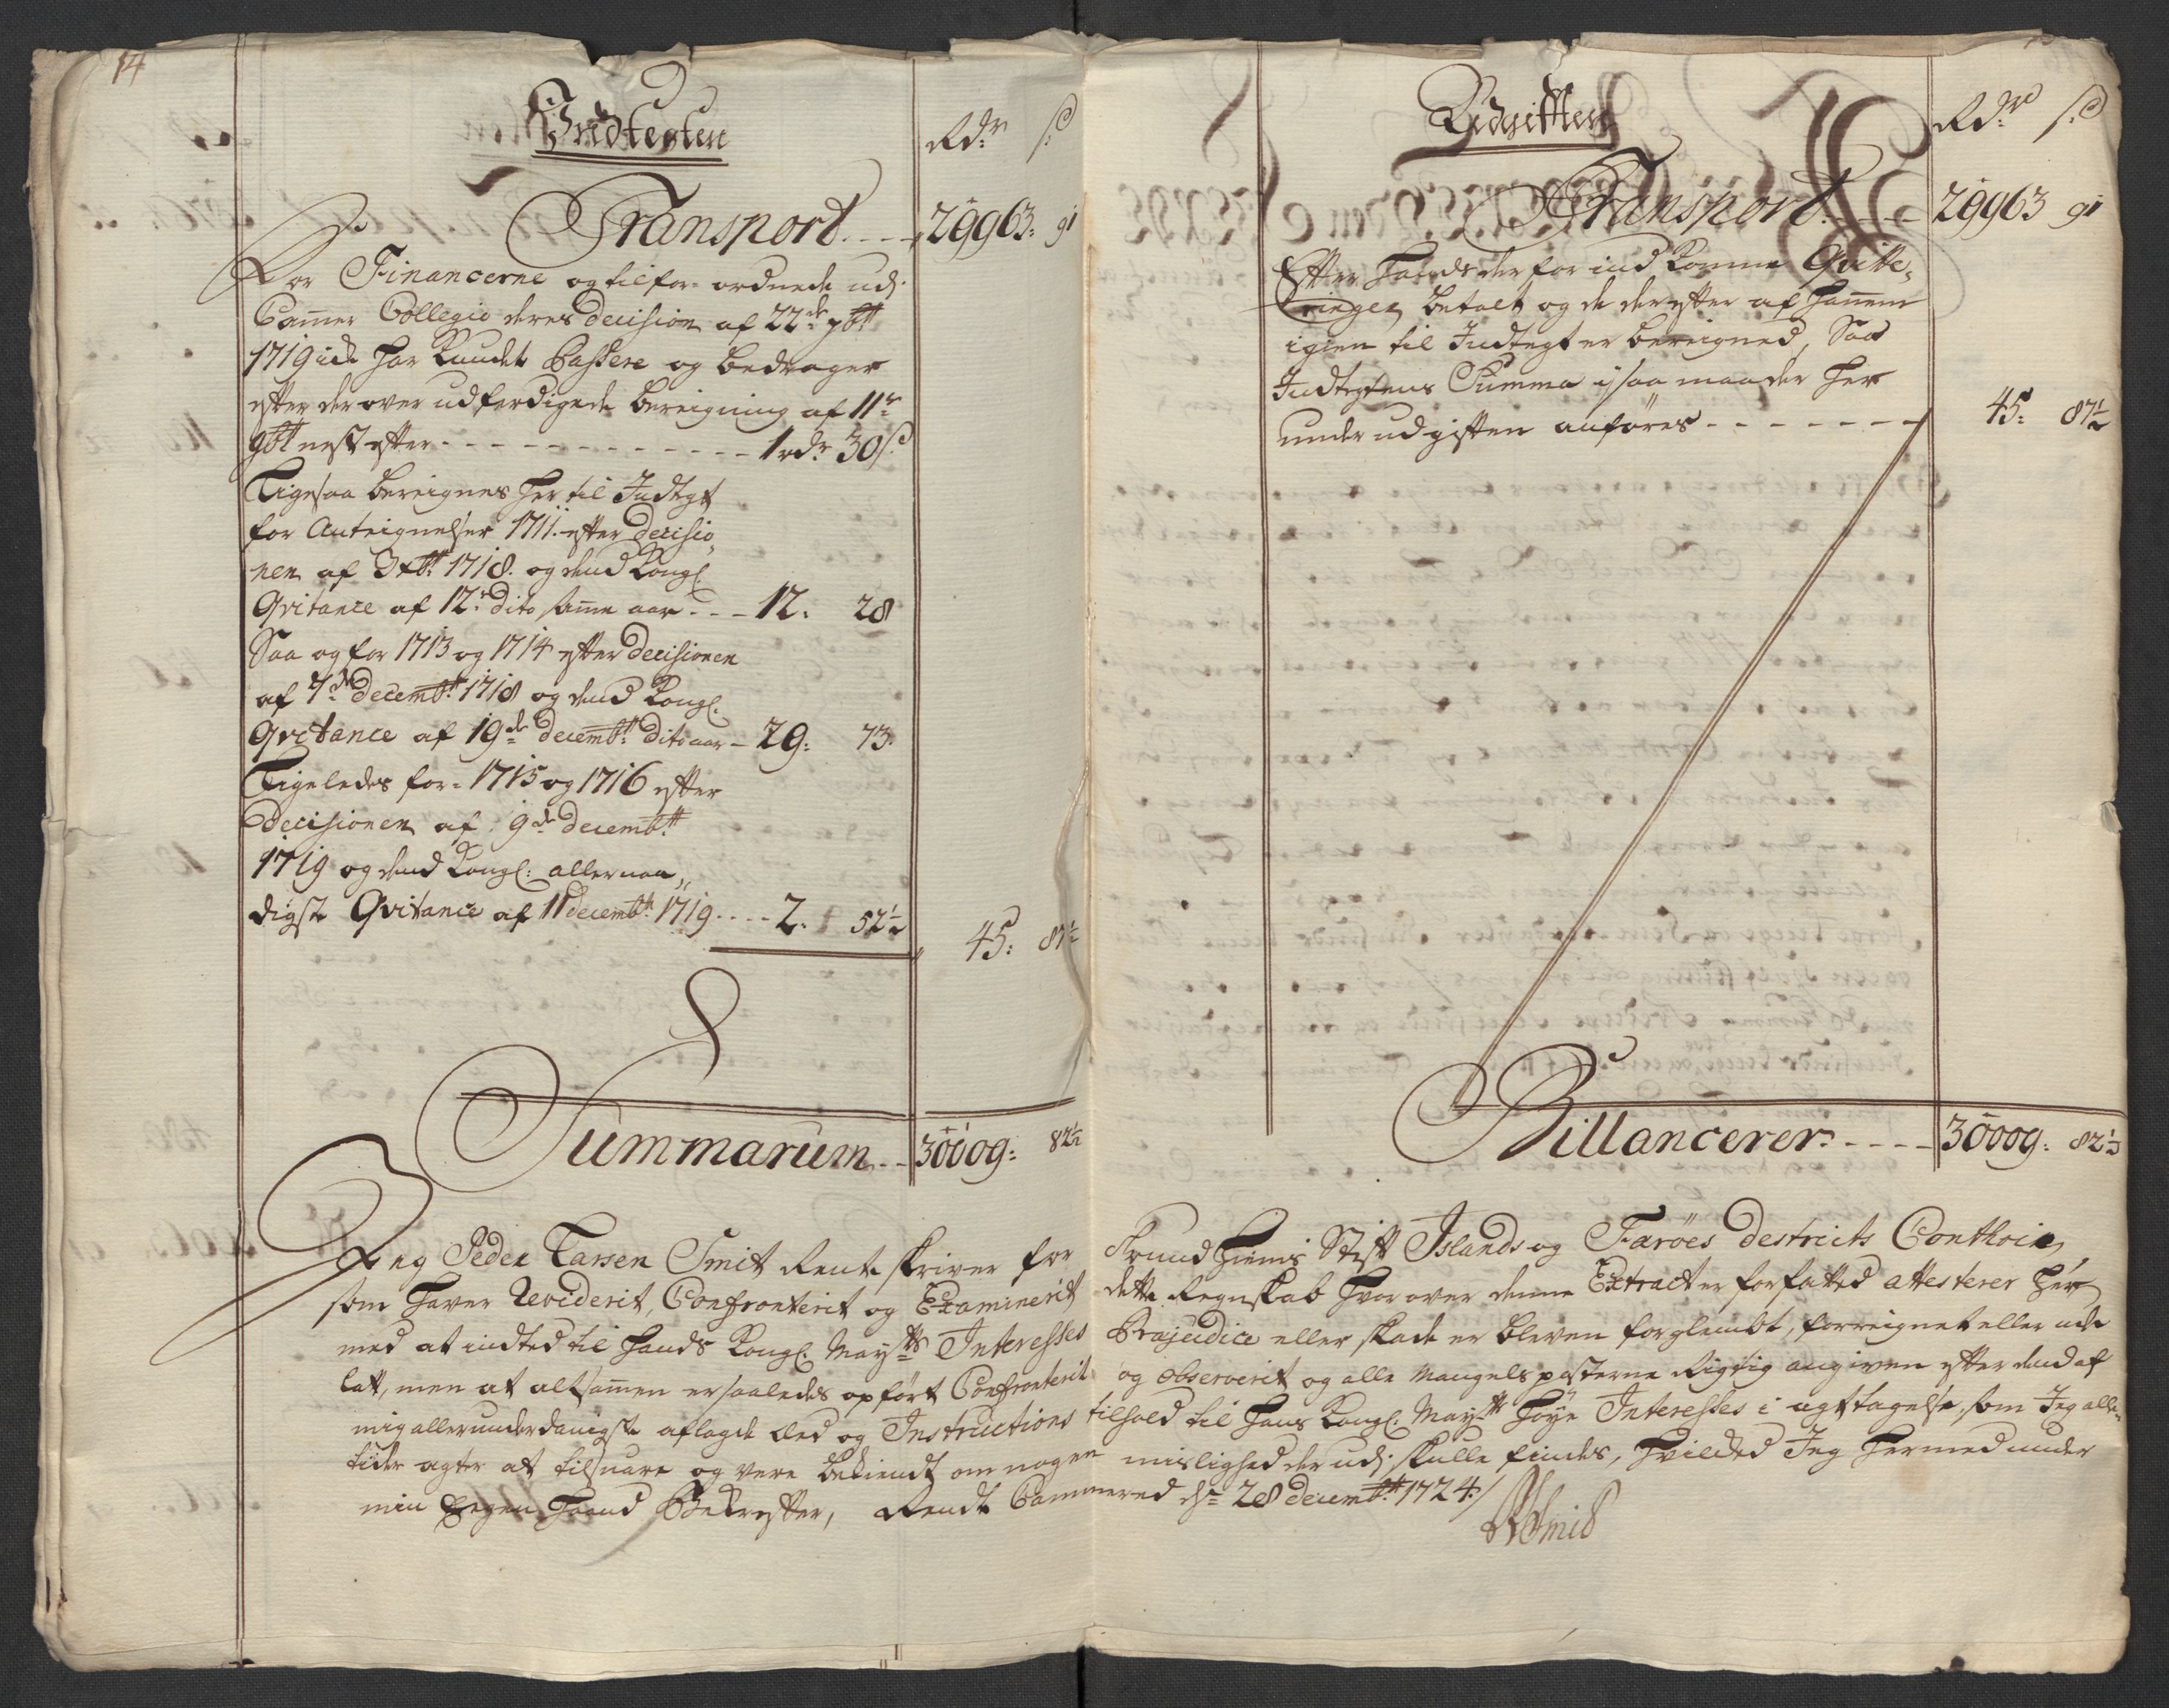 14
Indtegten
Rdr ß
Transport - - - 29963: 91
For Financerne og tilfor-ordnede udj
Cammer Collegio deres decision af 22de 7bt
1719 icke har kundet Passere og bedrager
efter der over udferdigede bereigning af 11te
9bt nest efter - - - - - - - - 1 rdr 30 ß
Ligesaa bereignes her til Indtegt
for Anteignelser 1711. efter Decisio,,
nen af 3 xbr 1718. og dend Kongl.
Qvitance af 12te dito samme aar - - - 12: 28
Saa og for 1713 og 1714 efter Decisionen
af 7de decembr 1718 og dend Kongl.
Qvitance af 19de decembr dito aar - 29: 73.
Ligeledes for- 1715 og 1716 efter
Decisionen af 9de decembr
1719 og dend Kongl: allernaa,,
digste Qvitance af 11 decembr 1719 - - - 2. 52½
45: 87½
Summarum - - 30009: 82½
Udgiften
Rdr ß
Transport - - - 29963 91
Efter hands der for ind komne Qvitte,,
ringer betalt og de derefter af hannem
igien til Indtegt er bereigned, Saa
Indtegtens Summa i saa maader her
under udgiften anføres - - - - - - - 45: 87½
Billancerer - - - - 30009: 82½
Jeg Peder Larsen Smit Rente skriver for Trundhiems Stift Islands og Færöes Destricts Conthoir,
som haver Reviderit, Confronterit og Examinerit dette Regnskab hvor over denne Extract er forfatted attesterer her
med at indted til hands Kongl. Maytts Interesses Præjudice eller skade er bleven forglembt, forreignet eller ude
latt, men at altsammen er saaledes opført Confronterit og observerit og alle Mangels posterne Rigtig angiven efter dend af
mig allerunderdanigste aflagde Eed og Instructions tilhold til Hans Kongl. Maytts høye Interesses i agttagelse, som Jeg alle,,
tider agter at tilsuare og vere bekiendt om nogen mislighed der udj skulle findes, hvilcked Jeg hermed under
min Eegen Haand Bekrefter, Rendte Cammered d: 28 decembr 1724./
PLSmid